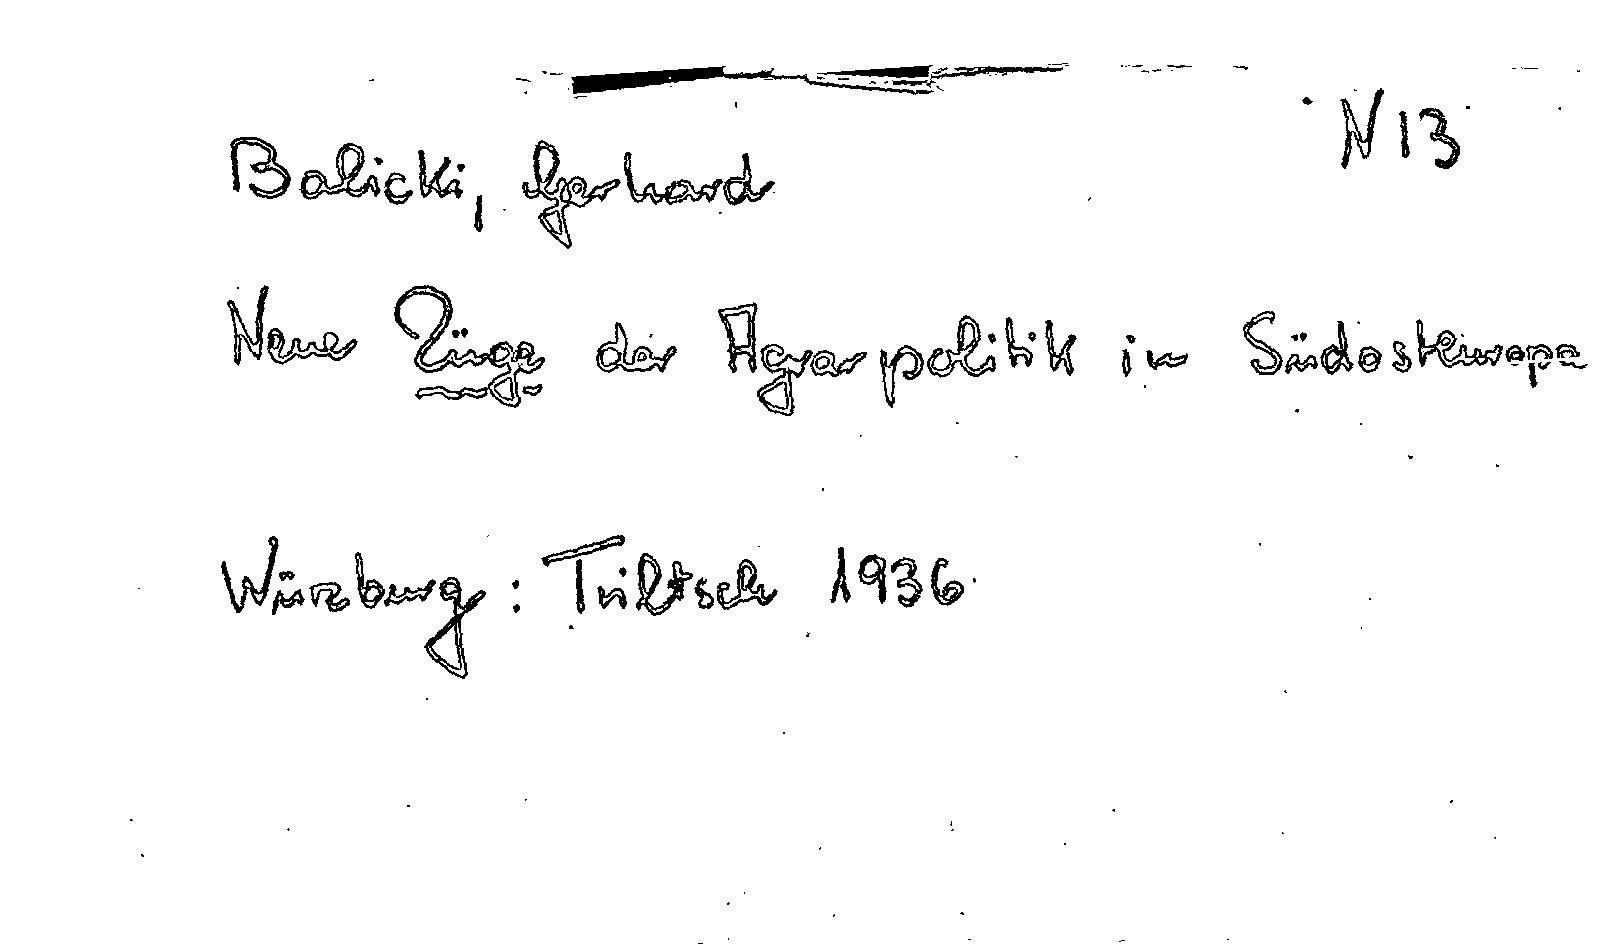 N 13
Balicki, Gerhard
Neue Züge der Agrarpolitik in Südosteuropa
Würzburg: Triltsch 1936